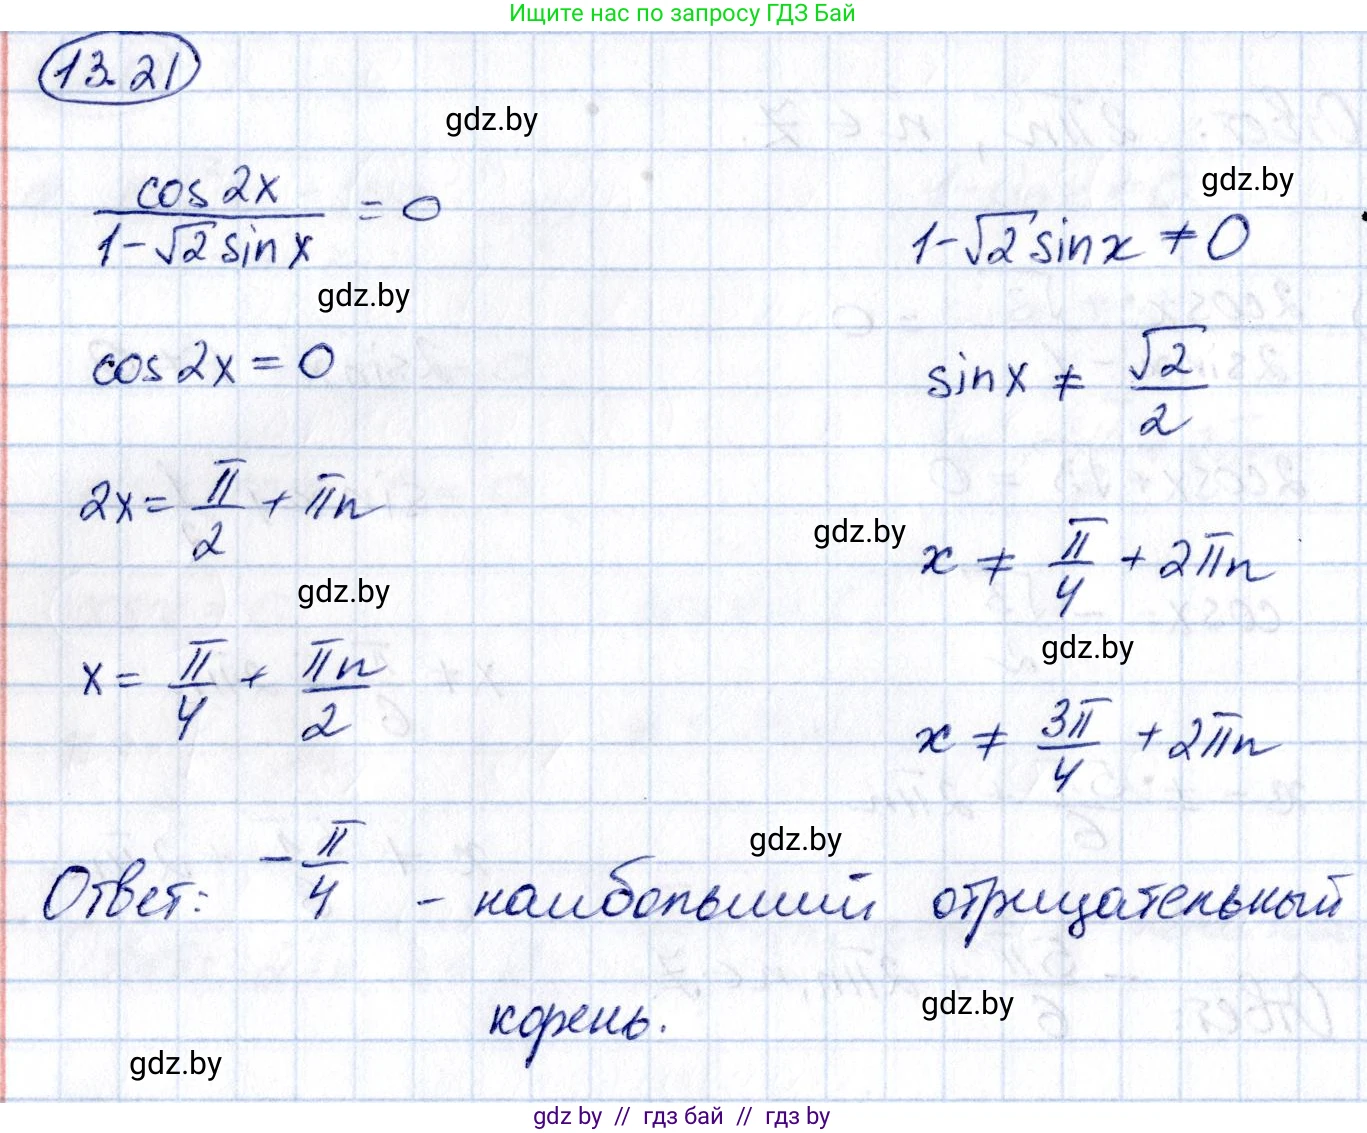 Ищите нас по запросу ГДЗ Бай
13.21
gdz.by
gdz.by
cos 2x / (1 - √2 sin x) = 0
1 - √2 sin x ≠ 0
gdz.by
cos 2x = 0
sin x ≠ √2/2
2x = π/2 + πn
gdz.by
x ≠ π/4 + 2πn
gdz.by
gdz.by
x = π/4 + πn/2
x ≠ 3π/4 + 2πn
gdz.by
Ответ: -π/4 - наибольший отрицательный
корень.
gdz.by
gdz.by
gdz by // гдз бай // гдз by